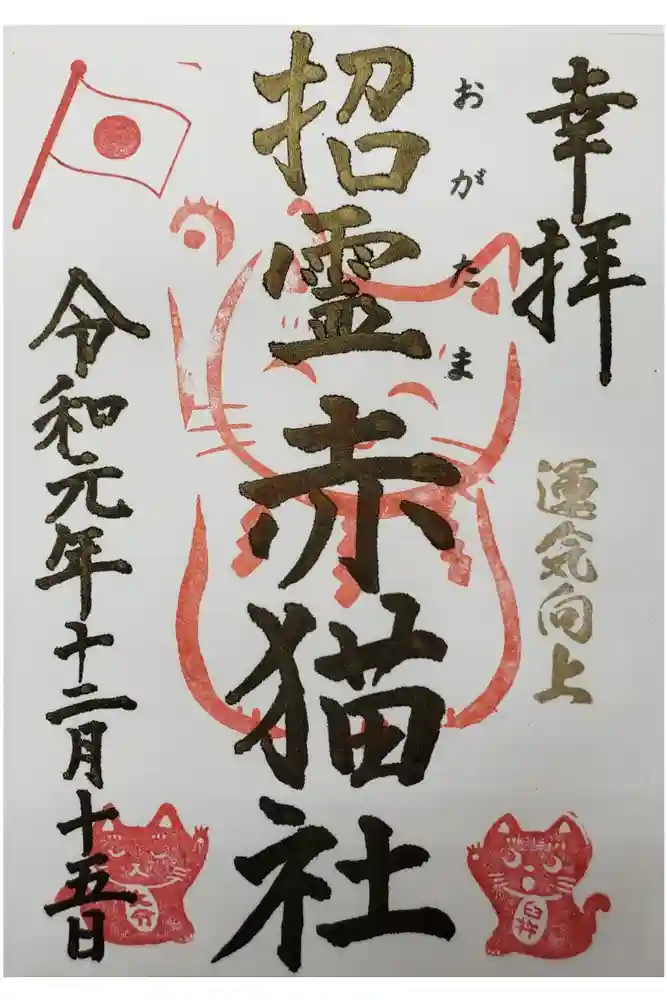 幸拝
運気向上
おがたま
招霊赤猫社
令和元年十二月十五日
臼杵
大分